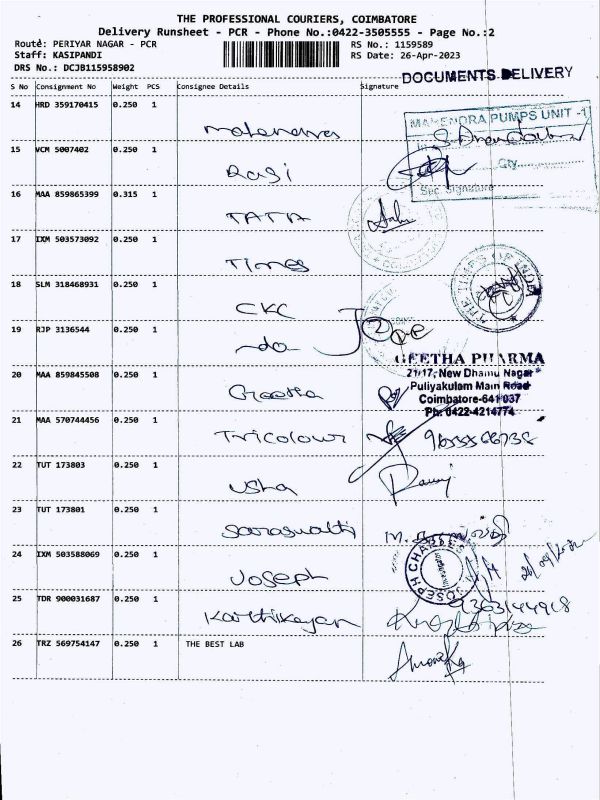 THE PROFESSIONAL COURIERS, COIMBATORE
Delivery Runsheet - PCR - Phone No.:0422-3505555 - Page No.:2
Route: PERIYAR NAGAR - PCR
RS No.: 1159589
Staff: KASIPANDI
RS Date: 26-Apr-2023
DRS No.: DCJB115958902
DOCUMENTS DELIVERY
S No Consignment No Weight PCS Consignee Details Signature
14 HRD 359170415 0.250 1
Mahendra
MAHENDRA PUMPS UNIT -1
15 VCM 5007402 0.250 1
Rasi
Qty
Sec. Signature
16 MAA 859865399 0.315 1
TATA
17 IXM 503573092 0.250 1
Times
THE TIMES OF INDIA
18 SLM 318468931 0.250 1
CKC
19 RJP 3136544 0.250 1
do
GEETHA PHARMA
21/17, New Dhamu Nagar
Puliyakulam Main Road
Coimbatore-641 037
Ph: 0422-4214774
20 MAA 859845508 0.250 1
Geetha
21 MAA 570744456 0.250 1
Tricolour
22 TUT 173803 0.250 1
Usha
23 TUT 173801 0.250 1
Saraswathi
24 IXM 503588069 0.250 1
Joseph
JOSEPH CHARLES
25 TDR 900031687 0.250 1
Karthikeyan
9363144918
26 TRZ 569754147 0.250 1 THE BEST LAB